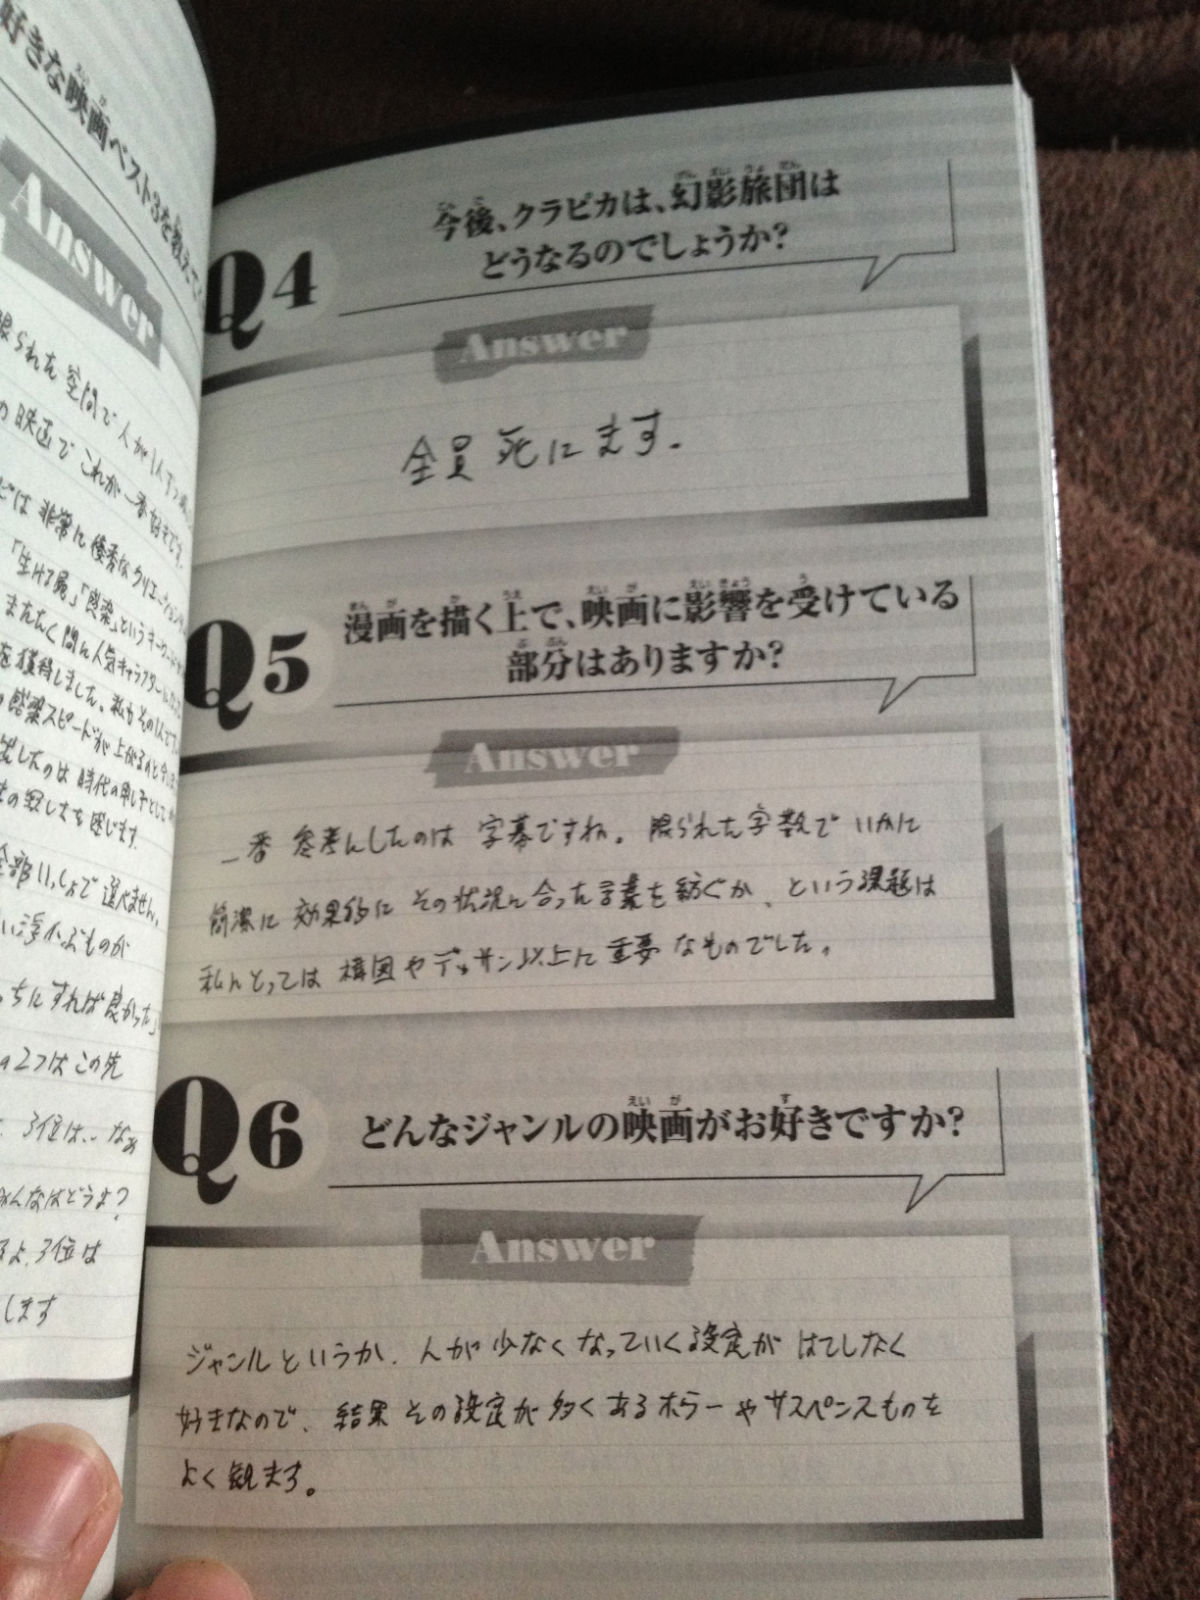 好きな映画ベスト3を教えて
Answer
限られた空間で人が1人ずつ
映画でこれが一番好きです。
は非常に優秀なクリエーション
「生ける屍」「感染」というキーワード
またたく間に人気キャラクター
を獲得しました。私もその1人です
感染スピードが上がるのと
したのは時代の申し子として
の寂しさを感じます
全部いっしょで選べません。
浮かぶものが
っちにすれば良かった」
2つはこの先
3位は… なあ
みんなはどうよ?
よ、3位は
します
Q4
今後、クラピカは、幻影旅団は
どうなるのでしょうか?
Answer
全員死にます.
Q5
漫画を描く上で、映画に影響を受けている
部分はありますか?
Answer
一番 参考にしたのは 字幕ですね。限られた字数で いかに
簡潔に 効果的に その状況に合った言葉を紡ぐか、という課題は
私にとっては 構図やデッサン以上に重要なものでした。
Q6
どんなジャンルの映画がお好きですか?
Answer
ジャンルというか、人が少なくなっていく設定が はてしなく
好きなので、結果 その設定が多くあるホラーやサスペンスものを
よく観ます。